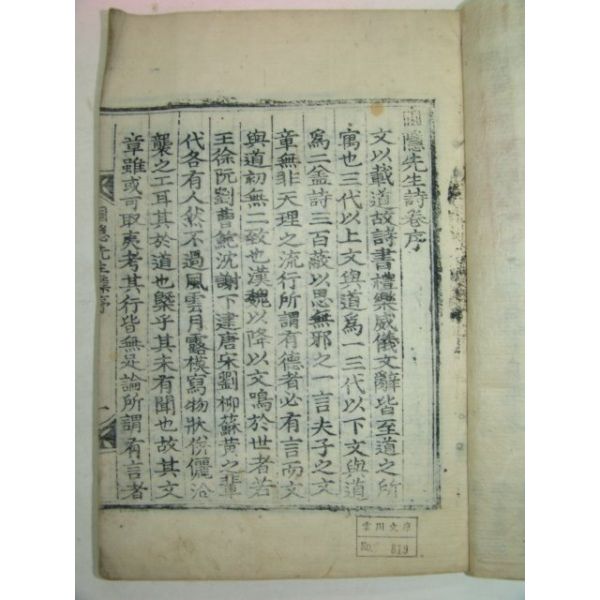 圃隱先生詩卷序
文以載道故詩書禮樂威儀文辭皆至道之所
寓也三代以上文與道爲一三代以下文與道
爲二盖詩三百蔽以思無邪之一言夫子之文
章無非天理之流行所謂有德者必有言而文
與道初無二致也漢魏以降以文鳴於世者若
王徐阮劉曹鮑沈謝下逮唐宋劉柳蘇黃之輩
代各有人然不過風雲月露模寫物狀併儷沿
襲之工耳其於道也槩乎其未有聞也故其文
章雖或可取夷考其行皆無足論所謂有言者
圃隱先生集序
一
文庫
No. 819